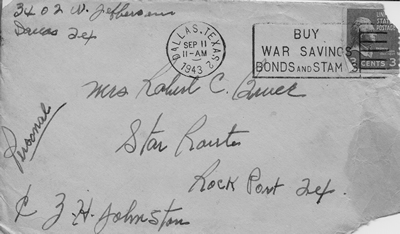 3402 W. Jefferson
Dallas Tex
DALLAS, TEXAS
SEP 11
11-AM
1943
BUY
WAR SAVINGS
BONDS AND STAMPS
UNITED STATES
POSTAGE
3 CENTS 3
Mrs Robert C.
Star Route
Rock Port Tex
Personal
% Z. H. Johnston